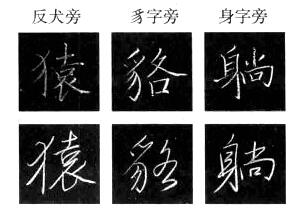 反犬旁 豸字旁 身字旁
猿 貉 躺
猿 貉 躺